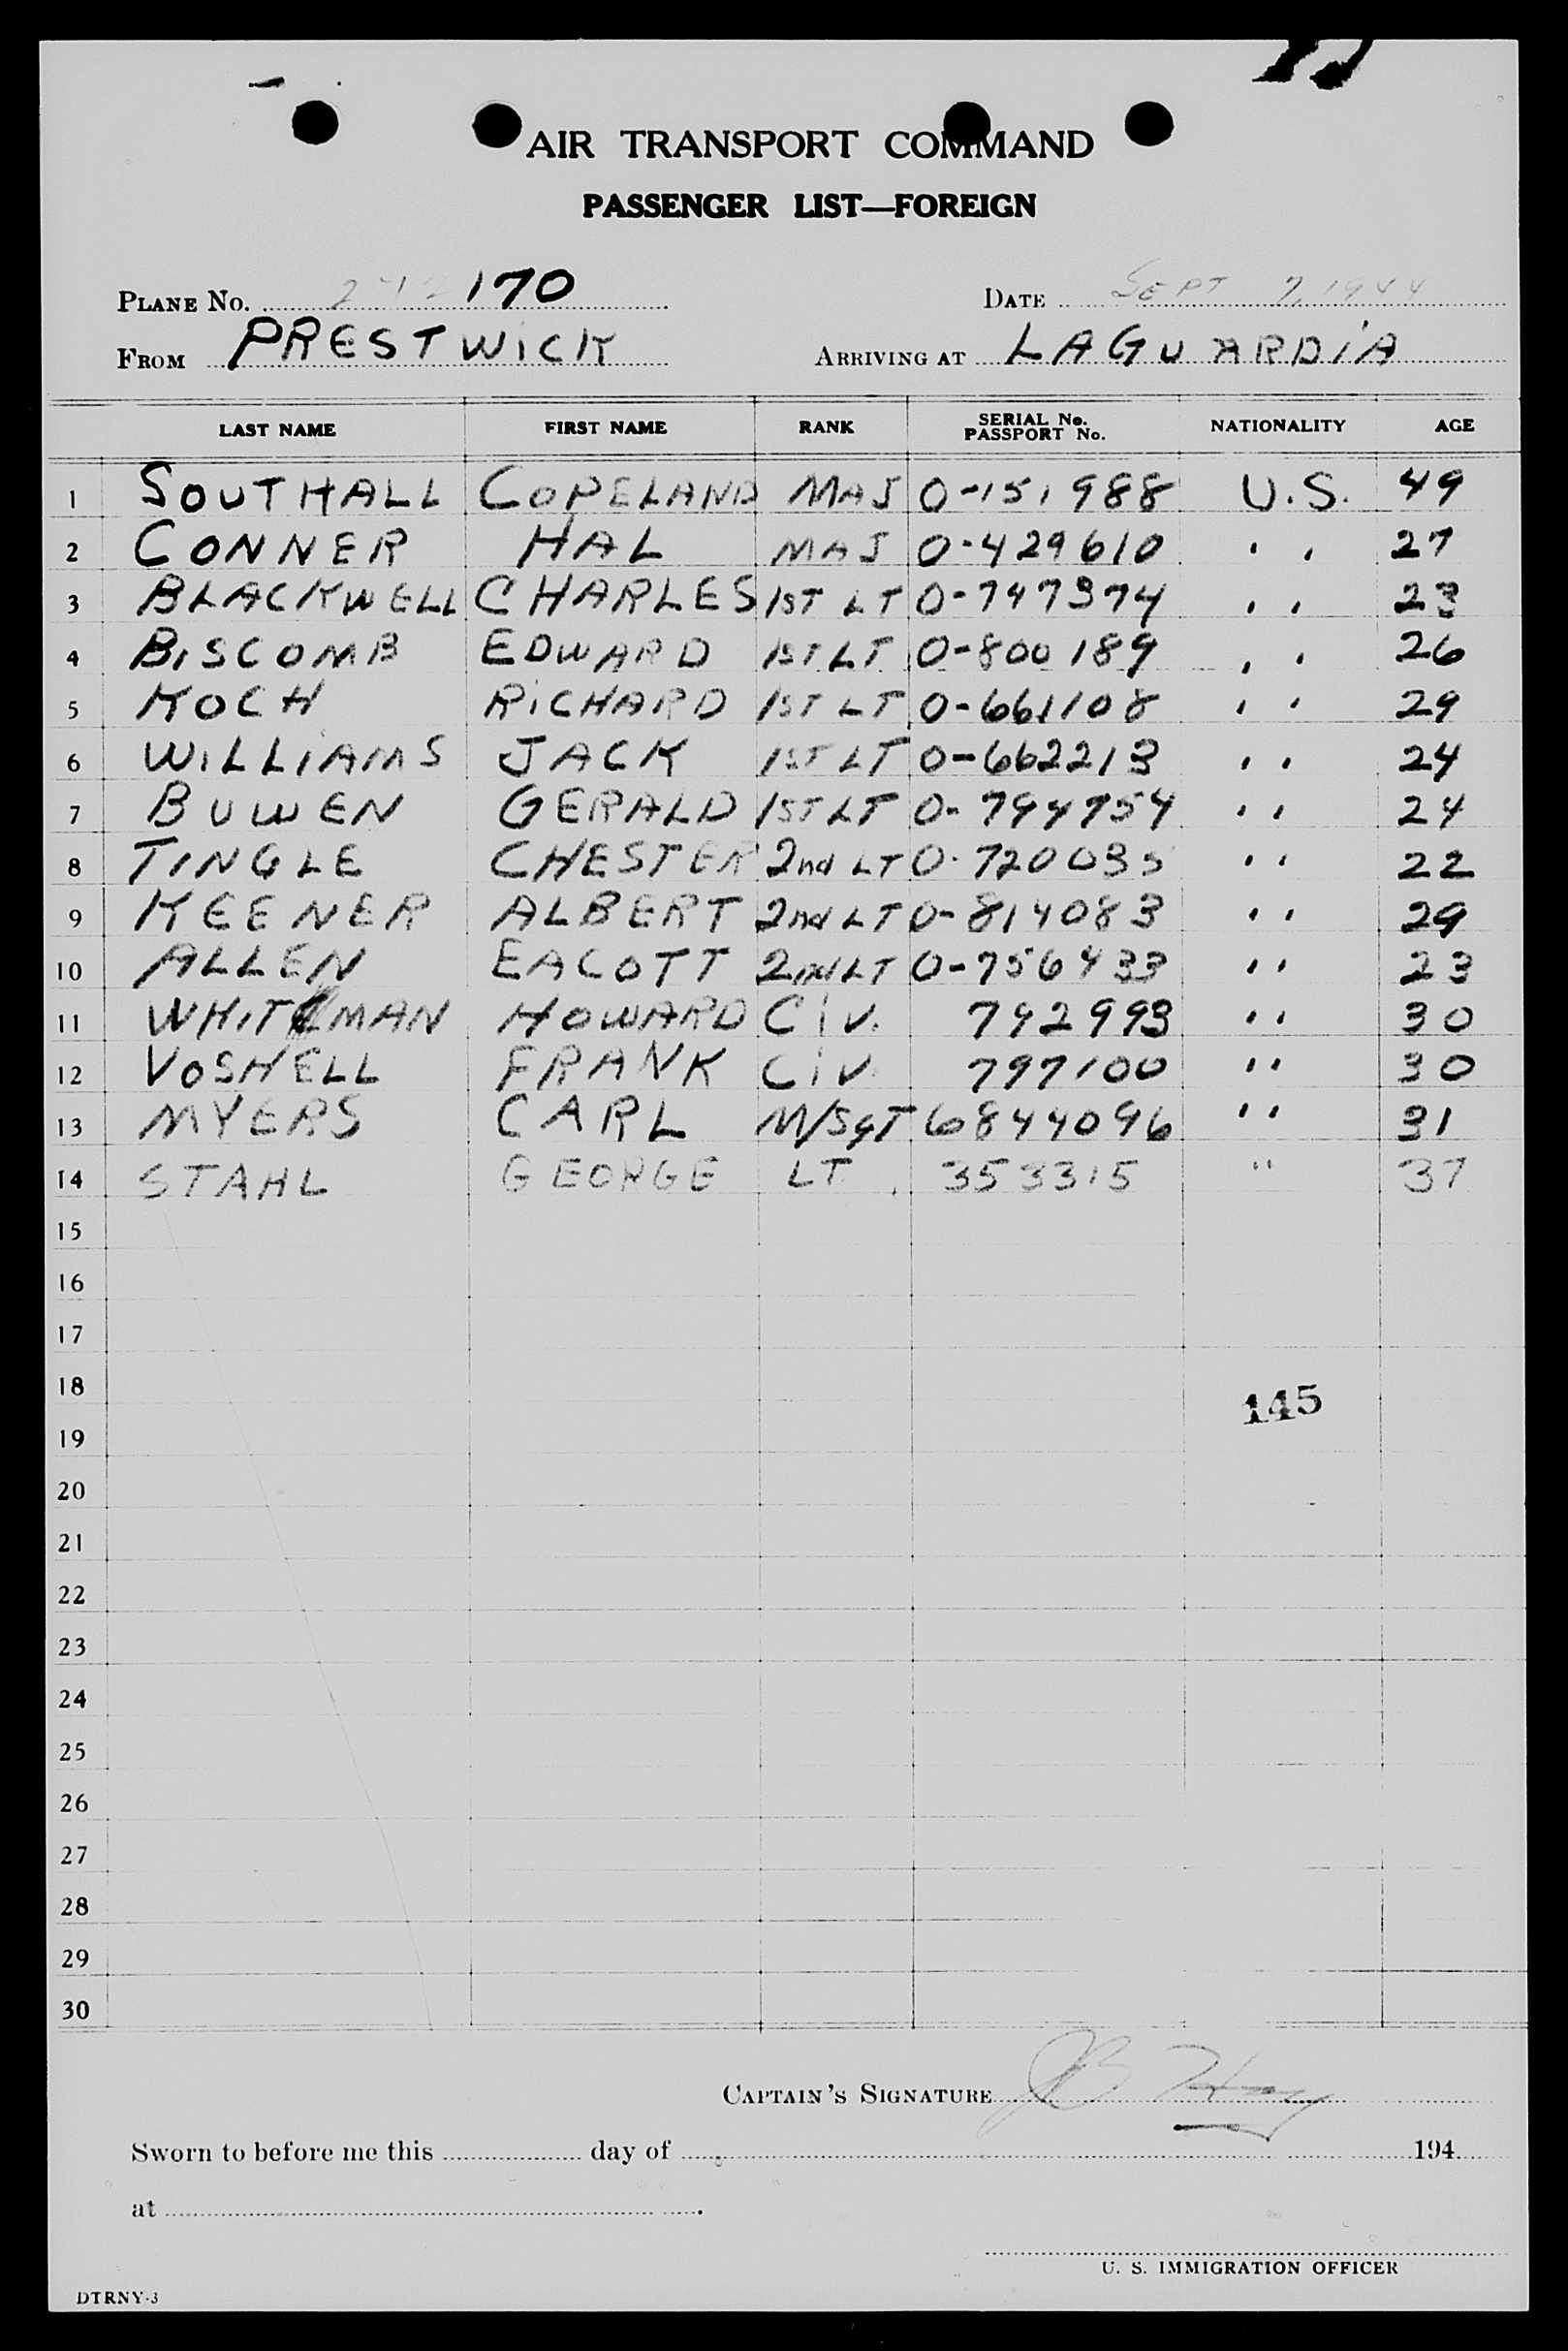 AIR TRANSPORT COMMAND
PASSENGER LIST—FOREIGN
PLANE No. 170 DATE SEPT 7, 1944
FROM PRESTWICK ARRIVING AT LAGUARDIA
LAST NAME FIRST NAME RANK SERIAL No. PASSPORT No. NATIONALITY AGE
1 SOUTHALL COPELAND MAJ O-151988 U.S. 49
2 CONNER HAL MAJ O-429610 " 27
3 BLACKWELL CHARLES 1ST LT O-747374 " 23
4 BISCOMB EDWARD 1ST LT O-800189 " 26
5 KOCH RICHARD 1ST LT O-661108 " 29
6 WILLIAMS JACK 1ST LT O-662213 " 24
7 BUWEN GERALD 1ST LT O-794754 " 24
8 TINGLE CHESTER 2nd LT O-720035 " 22
9 KEENER ALBERT 2nd LT O-814083 " 29
10 ALLEN EACOTT 2nd LT O-756433 " 23
11 WHITMAN HOWARD CIV. 792993 " 30
12 VOSHELL FRANK CIV. 797100 " 30
13 MYERS CARL M/SGT 6844096 " 31
14 STAHL GEORGE LT 353315 " 37
15
16
17
18
145
19
20
21
22
23
24
25
26
27
28
29
30
CAPTAIN'S SIGNATURE
Sworn to before me this day of 194
at .
U. S. IMMIGRATION OFFICER
DTRNY-3